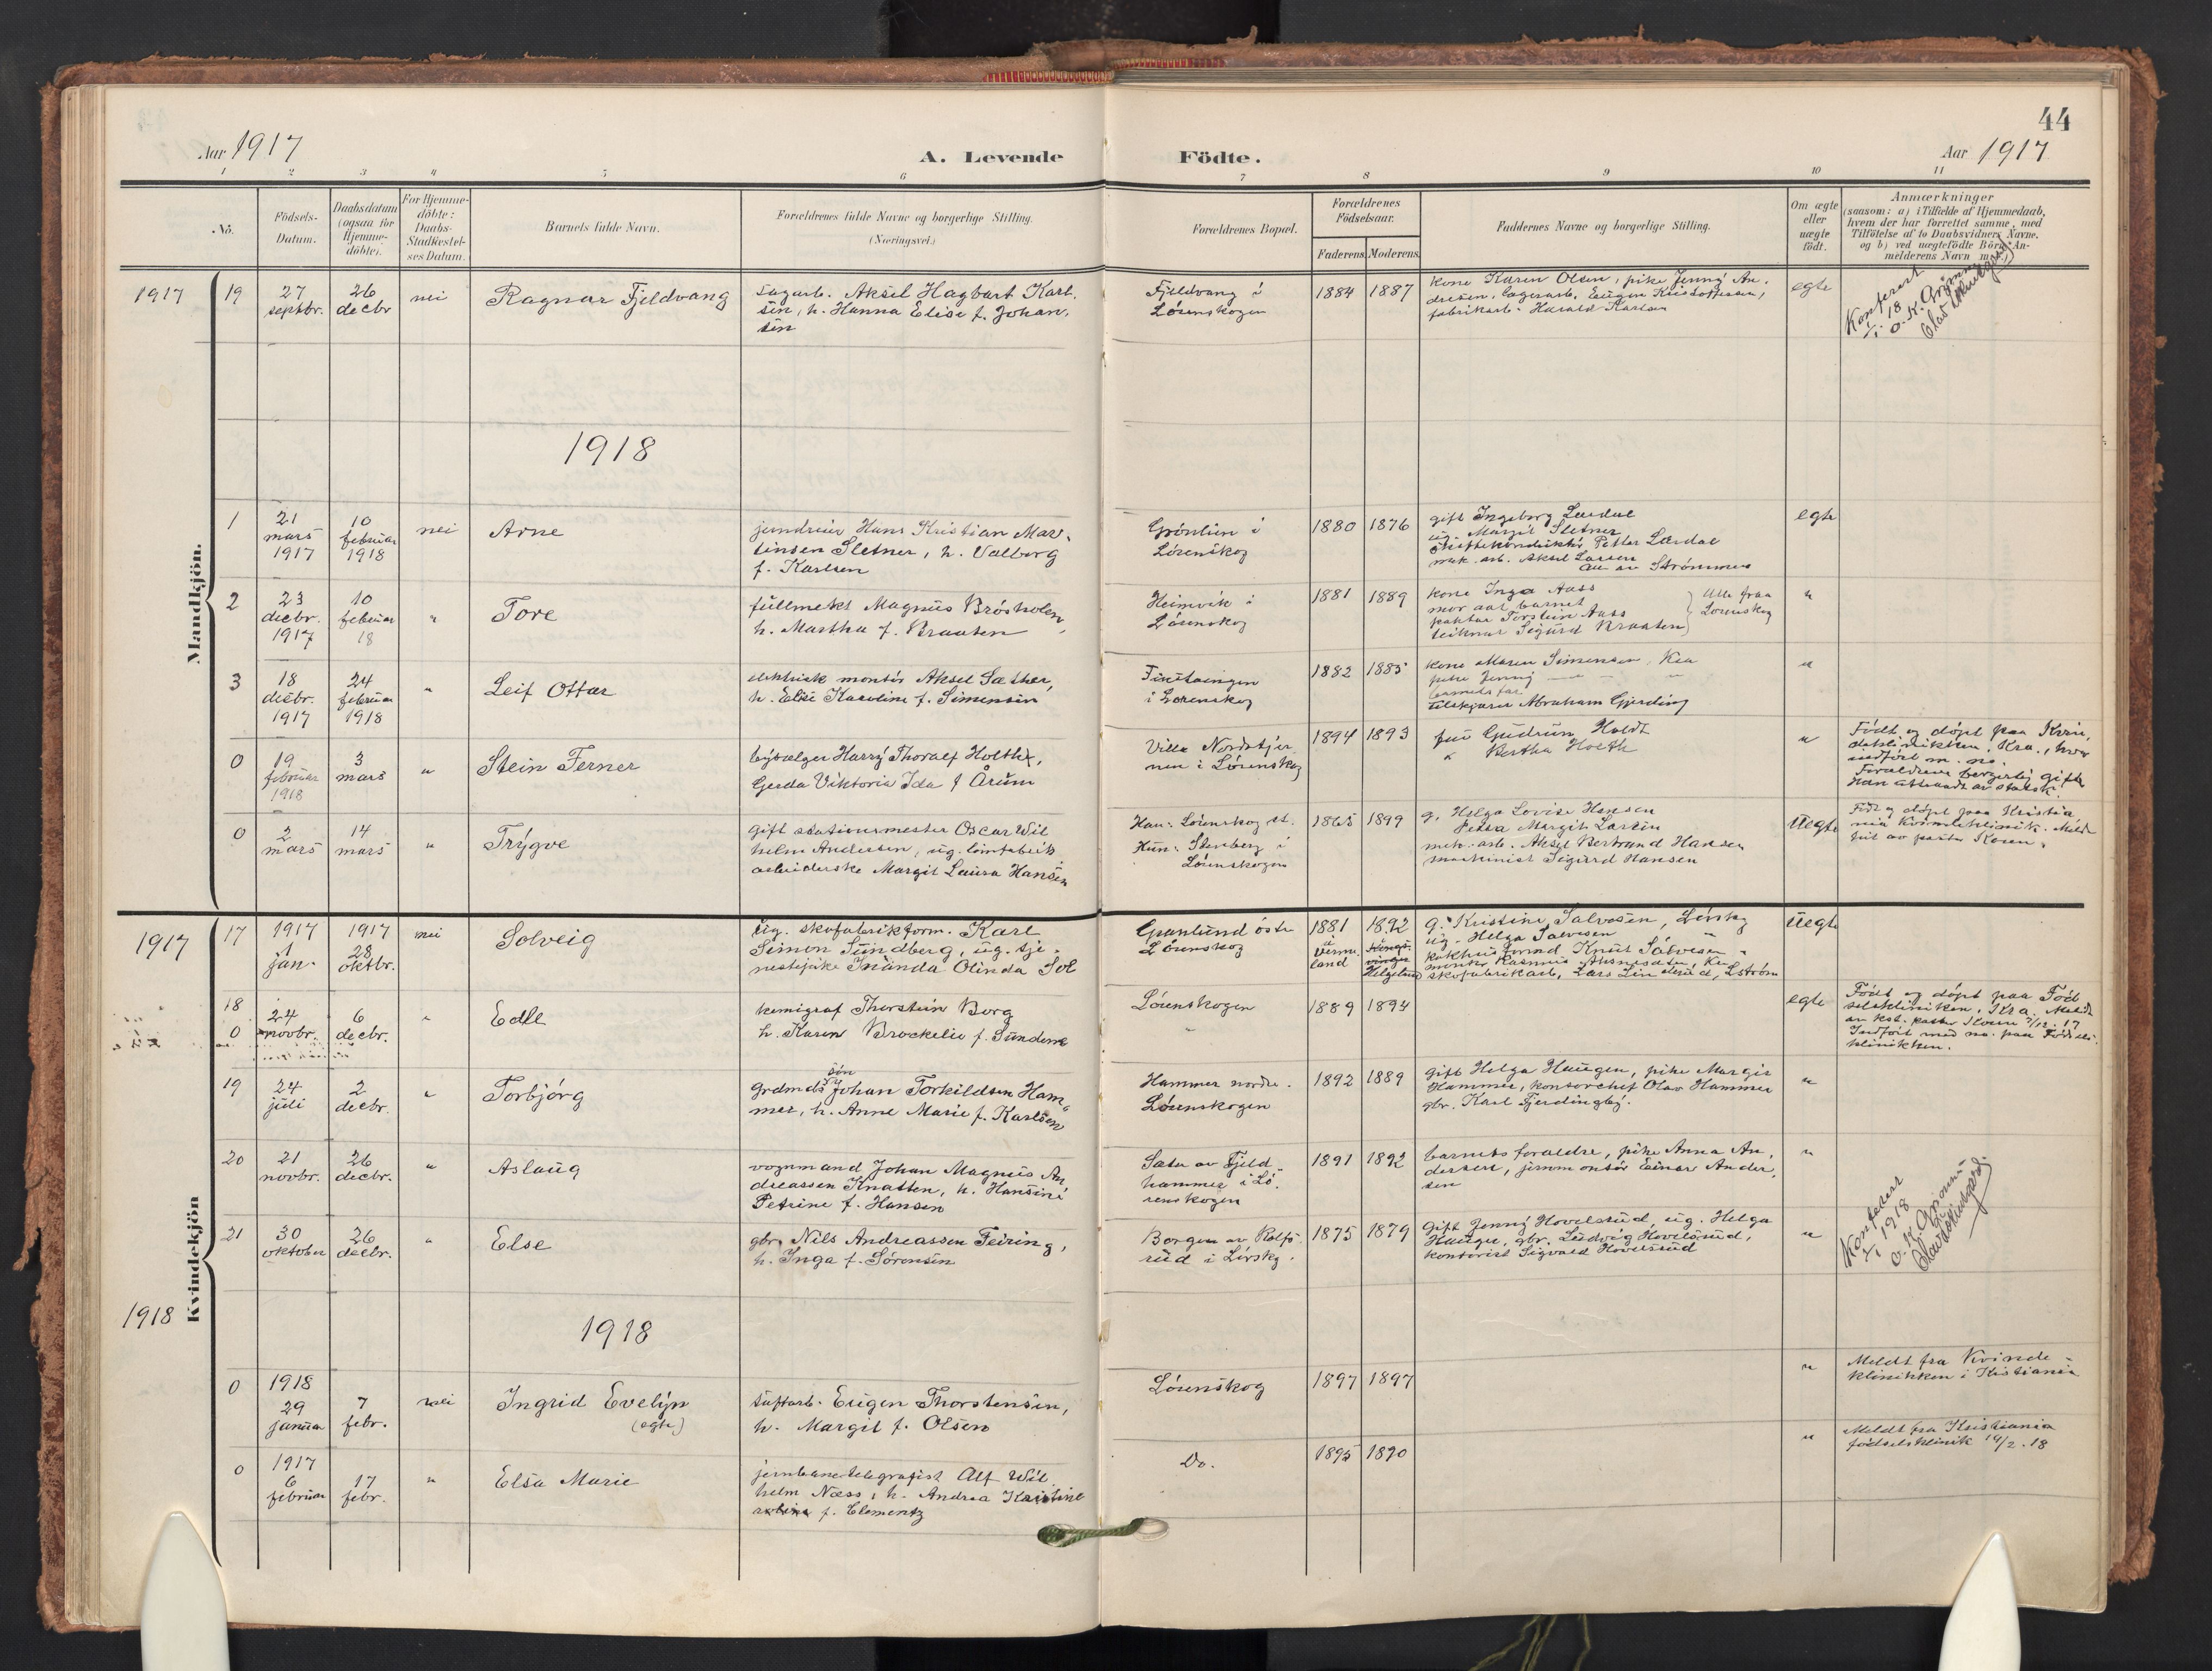 44
Aar 1917
A. Levende
Födte.
Aar 1917
1 2 3 4 5 6 7 8 9 10 11
No.
Födsels-
Datum.
Daabsdatum
(ogsaa for
Hjemme-
döbte).
For Hjemme-
döbte:
Daabs-
Stadfæstel-
ses Datum.
Barnets fulde Navn.
Forældrenes fulde Navne og borgerlige Stilling.
(Næringsvei.)
Forældrenes Bopæl.
Forældrenes
Födselsaar.
Faderens.
Moderens.
Faddernes Navne og borgerlige Stilling.
Om ægte
eller
uægte
födt.
Anmærkninger
(saasom: a) i Tilfælde af Hjemmedaab,
hvem der har forrettet samme, med
Tilföielse af to Daabsvidners Navne,
og b) ved uægtefödte Börn An-
melderens Navn m. m.)
Mandkjön.
1917
19
27
septbr.
26
decbr
nei
Ragnar Fjeldvang
sagarb. Aksel Hagbart Karl-
sen, h. Hanna Elise f. Johan-
sen
Fjeldvang i
Lørenskogen
1884
1887
kone Karen Olsen, pike Jenny An-
dresen, lagerarb. Eugen Kristoffersen,
fabrikarb. Harald Karlsen
egte
Konferert
1918
1918
1
21
mars
1917
10
februar
1918
nei
Arne
jerndreier Hans Kristian Mar-
tinsen Sletner, h. Valborg
f. Karlsen
Grønlien i
Lørenskog
1880
1876
gift Ingeborg Lærdal
ug. Margit Sletner
Petter Lærdal
mek. arb. Aksel Larsen
alle av Strømmen
egte
2
23
decbr.
1917
10
februar
18
"
Tore
fullmekt Magnus Brøsholen,
h. Martha f. Braaten
Heimvik i
Lørenskog
1881
1889
kone Inga Aass
mor aat barnet
Torstein Aass
teiknar Sigurd Braaten
Alle fraa
Lørenskog
"
3
18
decbr.
1917
24
februar
1918
"
Leif Ottar
elektrisk montør Aksel Sæther,
h. Elise Karoline f. Simensen
i Lørenskog
1882
1885
kone Maren Simensen, Kra
pike Jenny — "
barnets far
Abraham Gjerding
"
0
19
februar
1918
3
mars
"
Stein Ferner
Harry Thoralf Holth,
Gerda Viktoria Ida f Årum
Villa Nordstjer-
nen i Lørenskog
1894
1893
fru Gudrun Holdt
" Bertha Holth
"
Født og døpt paa Kvin-
deklinikken, Kra., hvor
indført m. no.
Forældrene borgerlig gifte
Han uttraadt av statsk.
0
2
mars
14
mars
"
Trygve
gift stationsmester Oscar Wil
helm Andersen, ug. limfabrik
arbeiderske Margit Laura Hansen
Han: Lørenskog st.
Hun: Stenberg i
Lørenskogen
1865
1899
g. Helga Lovise Hansen
Petra Margit Larsen
mek. arb. Aksel Bertrand Hansen
maskinist Sigurd Hansen
Uegte
Født og døpt paa Kristia-
nia Kvindeklinik. Meldt
hit av pastor Koren.
Kvindekjön
1917
17
1917
1
jan.
1917
28
oktbr.
nei
Solveig
ug. skofabrikform. Karl
Simon Sundberg, ug. tje-
nestepike Inanda Olinda Sol
Granlund østre
Lørenskog
1881
i
Verm-
land
1892
Helgeland
g. Kristine Salvesen, Lørskog
ug. Helga Salvesen "
kokhusformd Knut Salvesen "
skofabrikarb. Lars Linderud, Lstrøm
Uegte
18
0
24
novbr.
6
decbr.
"
Edle
kemigraf Thorstein Borg
h. Karen Brockelie f. Sundene
Lørenskogen
"
1889
1894
egte
Født og døpt paa Fød
selsklinikken, Kra. Meldt
av kst. pastor Koren 7/12. 17
Indført med no. paa Fødsels-
klinikken.
19
24
juli
2
decbr.
"
Torbjørg
grdmds søn Johan Torkildsen Ham-
mer, h. Anne Marie f. Karlsen
Hammer nordre.
Lørenskogen
1892
1889
gift Helga Haugen, pike Margit
Hammer, kontorchef Olav Hammer
gbr. Karl Fjerdingby.
"
20
21
novbr.
26
decbr.
"
Aslaug
vognmand Johan Magnus An
dreassen Knatten, h. Hansine
Petrine f. Hansen
Sæter av Fjeld-
hammer i Lø-
renskogen
1891
1892
barnets foraldre, pike Anna An-
dersen, jernmontør Einar Ander-
sen
"
21
30
oktober
26
decbr.
"
Else
gbr. Nils Andreassen Feiring,
h. Inga f. Sørensen
Borgen av Rolfs-
rud i Lørskg.
1875
1879
Gift Jenny Hovelsrud, ug. Helga
Hauger, gbr. Ludvig Hovelsrud,
kontorist Sigvald Hovelsrud
"
Konferert
1918
1918
1918
0
1918
29
januar
7
febr.
nei
Ingrid Evelyn
(egte)
tuftarb. Eugen Thorstensen,
h. Margit f. Olsen
Lørenskog
1897
1897
"
Meldt fra Kvinde-
klinikken i Kristiania
0
1917
6
februar
17
febr.
"
Elsa Marie
jernbanetelegrafist Alf Wil
helm Næss, h. Andrea Kristine
f. Clementz
Do.
1895
1890
"
Meldt fra Kristiania
fødselsklinik 19/2. 18